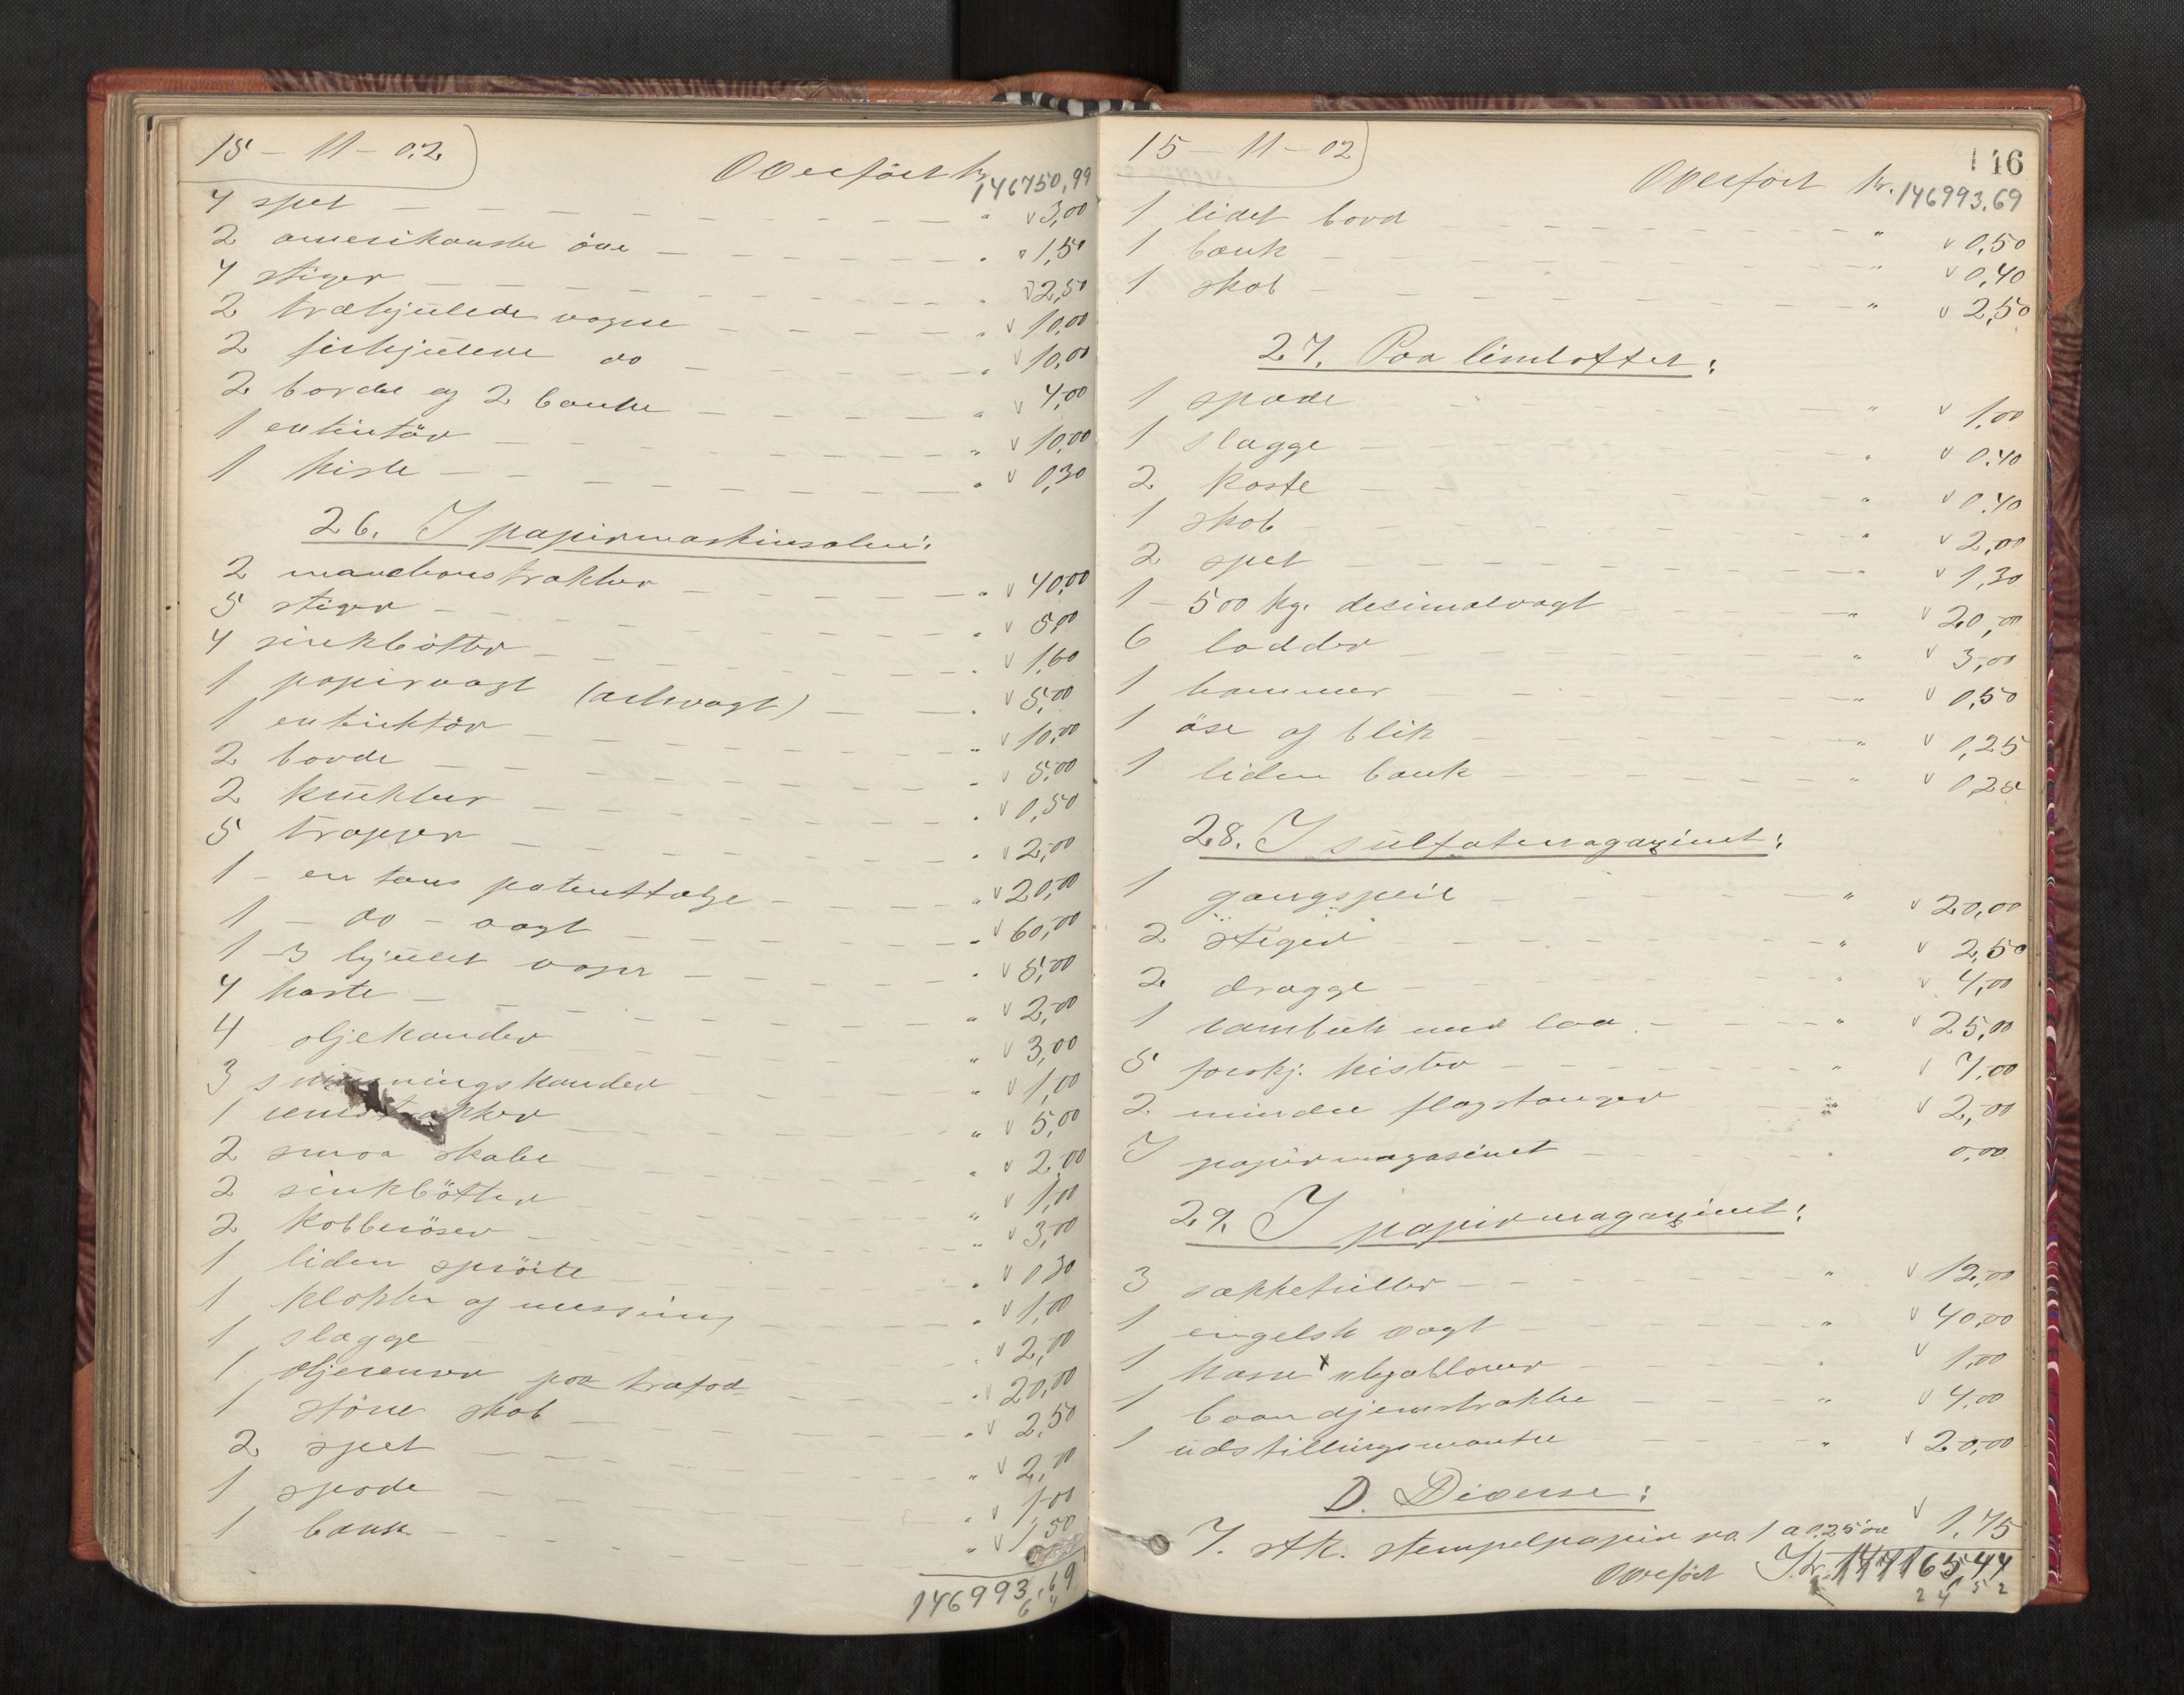 15 – 11 – 02
Overført kr. 146750,99
4 spet " 3,00
2 amerikanske öxe " 1,50
4 stiger " 2,50
2 træhjulede vogne " 10,00
2 firhjulede do " 10,00
2 borde og 2 bænke " 4,00
1 extinktör " 10,00
1 kiste " 0,30
26. I papirmaskinsalen:
2 manchonstrakker " 40,00
5 stiger " 5,00
4 sinkbötter " 1,60
1 papirvægt (arkvægt) " 5,00
1 extinktör " 10,00
2 borde " 5,00
2 krukker " 0,50
5 trapper " 2,00
1 – en tons patenttalje " 20,00
1 – do – vægt " 60,00
1 – 3 hjulet vogn " 5,00
4 koste " 2,00
4 oljekander " 3,00
3 smøringskander " 1,00
1 remstrækker " 5,00
2 smaa skabe " 2,00
2 sinkbötter " 1,00
2 kobberöser " 3,00
1 liden spröite " 0,30
1 klokke af messing " 1,00
1 slægge " 2,00
1 oljerenser paa træfod " 20,00
1 större skab " 2,50
2 spet " 2,00
1 spade " 1,00
1 bænk " 1,50
146993,69
15 – 11 – 02
116
Overført kr. 146993,69
1 lidet bord " 0,50
1 bænk " 0,40
1 skab " 2,50
27. Paa limloftet:
1 spade " 1,00
1 slægge " 0,40
2 koste " 0,40
1 skab " 2,00
2 spet " 1,30
1 – 500 kg. desimalvægt " 20,00
6 lodder " 3,00
1 hammer " 0,50
1 öse af blik " 0,25
1 liden bænk " 0,25
28. I sulfatmagazinet:
1 gangspeil " 20,00
2 stiger " 2,50
2 drægge " 4,00
1 rambuk med lod " 25,00
5 forskj. kister " 7,00
2 mindre flagstænger " 2,00
I papirmagasinet " 0,00
29. I papirmagazinet:
3 sækketriller " 12,00
1 engelsk vægt " 40,00
1 kasse x skjabloner " 1,00
1 baandjernstrække " 4,00
1 udstillingsmontre " 20,00
D. Diverse:
7. stk. stempelpapir no. 1 a 0.25 öre 1,75
Overført Kr. 147165,44